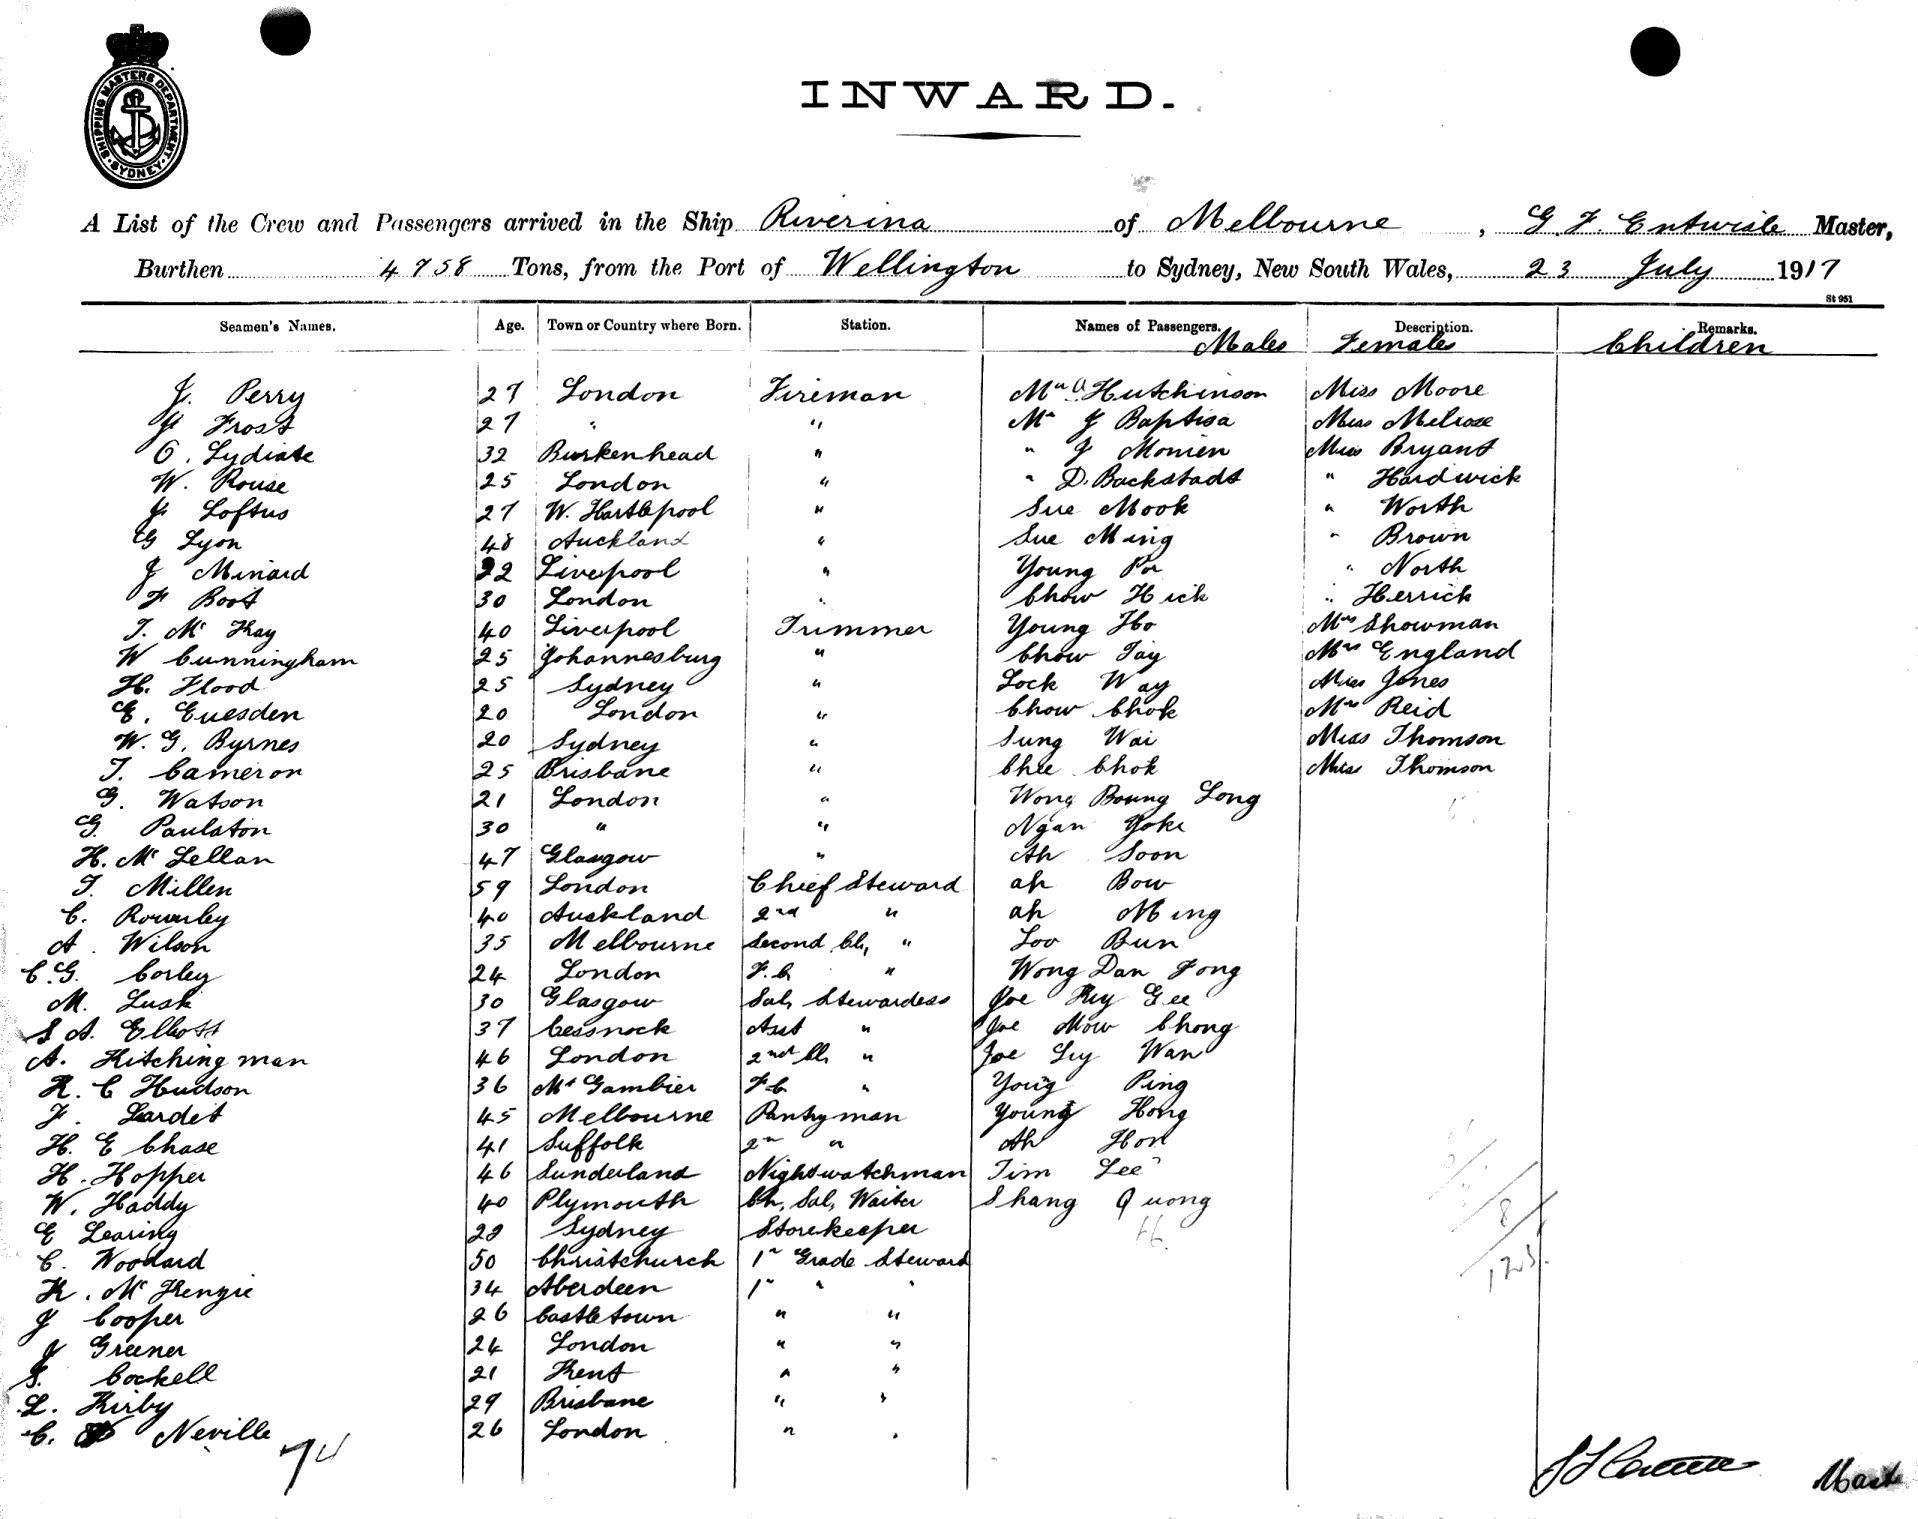 SHIPPING MASTERS DEPARTMENT. SYDNEY.
INWARD.
A List of the Crew and Passengers arrived in the Ship Riverina of Melbourne, G. F. Entwisle Master,
Burthen 4758 Tons, from the Port of Wellington to Sydney, New South Wales, 23 July 1917
St 951
Seamen's Names. Age. Town or Country where Born. Station. Names of Passengers. Description. Remarks.
Males Females Children
J. Perry 27 London Fireman Mr A Hutchinson Miss Moore
J Frost 27 " " Mr J Baptisa Miss Melrose
O. Lydiate 32 Burkenhead " " J Monien Miss Bryant
W. Rouse 25 London " " D. Backstadt " Hardwick
J Loftus 27 W. Hartlepool " Sue Mook " Worth
G Lyon 48 Auckland " Sue Ming " Brown
J Minard 22 Liverpool " Young Por " North
F Boot 30 London " Chow Hick " Herrick
T. Mc Kay 40 Liverpool Trimmer Young Ho Mrs Showman
W Cunningham 25 Johannesburg " Chow Tay Mrs England
H. Flood 25 Sydney " Lock Way Miss Jones
E. Euesden 20 London " Chow Chok Mrs Reid
W. G. Byrnes 20 Sydney " Sung Wai Miss Thomson
T. Cameron 25 Brisbane " Chee Chok Miss Thomson
G. Watson 21 London " Wong Boung Long
G. Paulston 30 " " Ngan Yoke
H. Mc Lellan 47 Glasgow " Ah Soon
T. Millen 59 London Chief Steward ah Bow
C. Rowley 40 Auckland 2nd " ah Ming
A. Wilson 35 Melbourne Second Cl, " Loo Bun
C. G. Corley 24 London F.C " Wong Dan Fong
M. Lusk 30 Glasgow Sal, Stewardess Joe Key Gee
S A. Elliott 37 Cessnock Asst " Joe Mow Chong
A. Kitchingman 46 London 2nd Cl, " Joe Luy Wan
R. C Hudson 36 Mt Gambier F C " Young Ping
F. Lardet 45 Melbourne Pantryman Young Hong
H. E Chase 41 Suffolk 2nd " Ah Hon
H. Hopper 46 Sunderland Nightwatchman Tim Lee
W. Haddy 40 Plymouth Ch, Sal, Waiter Shang Quong
E Learing 22 Sydney Storekeeper
C. Woodard 50 Christchurch 1st Grade Steward
K. Mc Kenzie 34 Aberdeen 1st " "
J Cooper 26 Castletown " "
J Greener 24 London " "
S. Cockell 21 Kent " "
L. Kirby 29 Brisbane " "
C. Neville 26 London " "
74